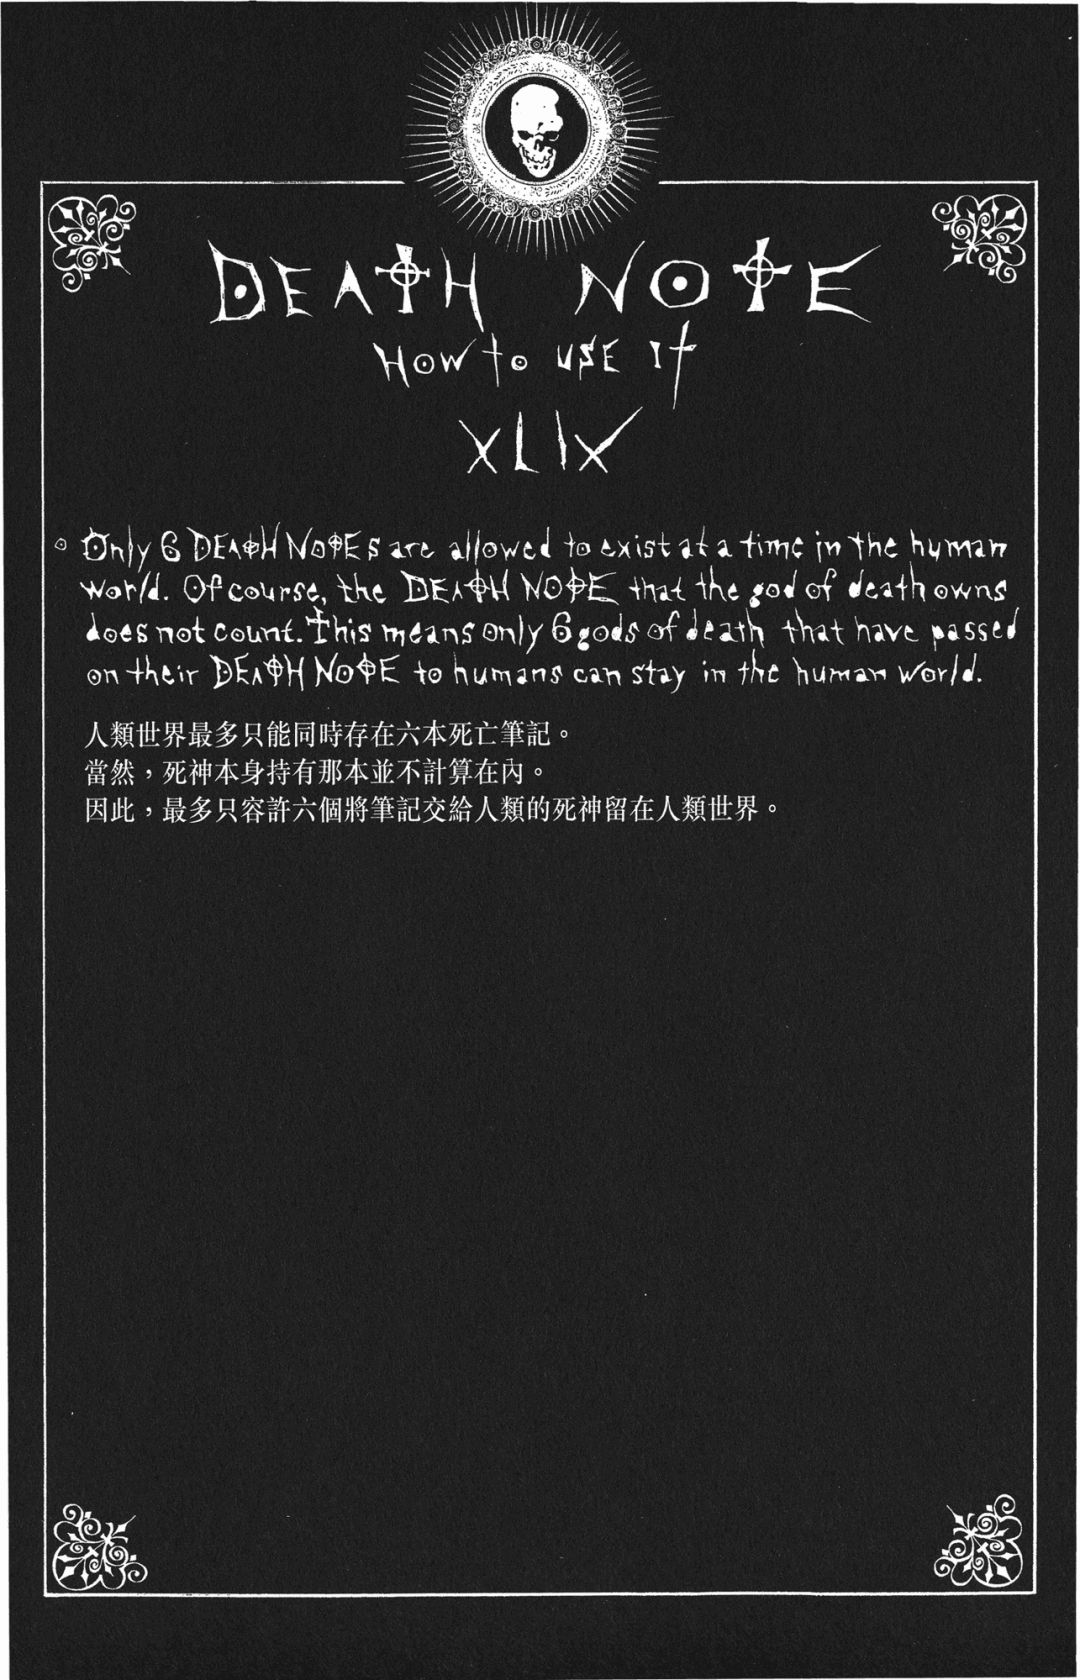 DEATH NOTE
HOW to USE It
XLIX
Only 6 DEATH NOTEs are allowed to exist at a time in the human
world. Of course, the DEATH NOTE that the god of death owns
does not count. This means only 6 gods of death that have passed
on their DEATH NOTE to humans can stay in the human world.
人類世界最多只能同時存在六本死亡筆記。
當然，死神本身持有那本並不計算在內。
因此，最多只容許六個將筆記交給人類的死神留在人類世界。